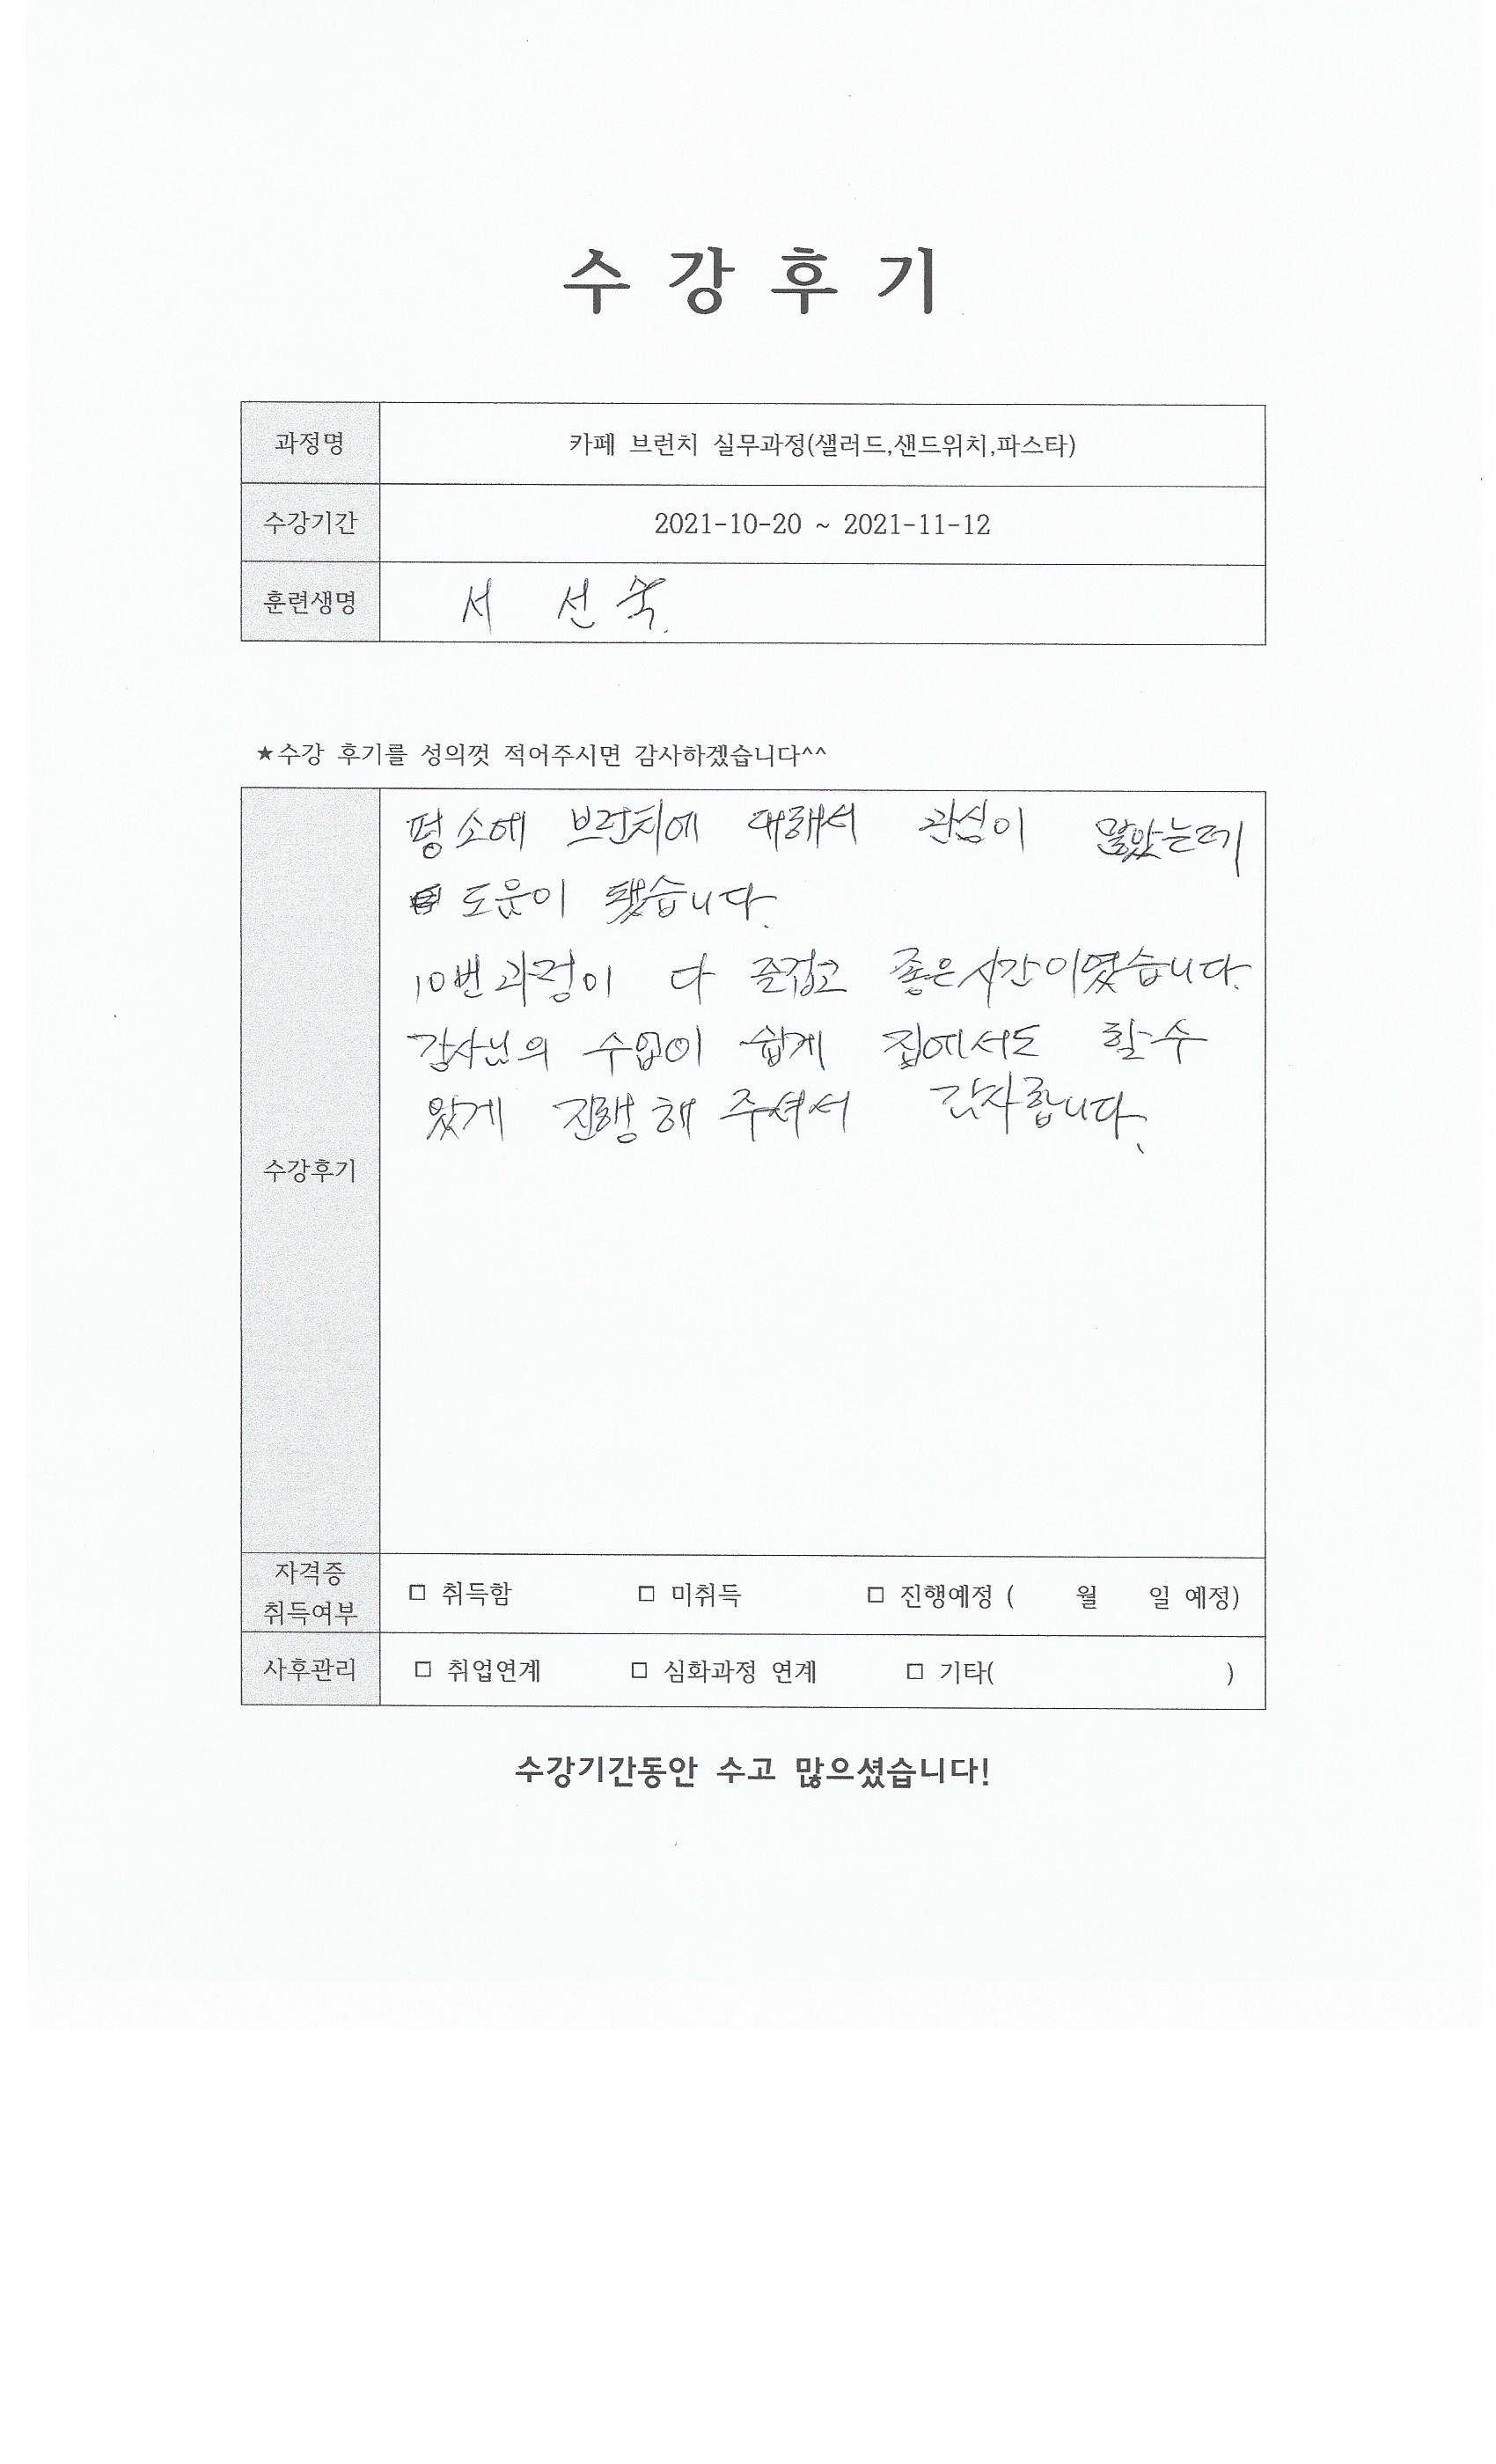 수 강 후 기
과정명 카페 브런치 실무과정(샐러드,샌드위치,파스타)
수강기간 2021-10-20 ~ 2021-11-12
훈련생명 서 선숙.
★수강 후기를 성의껏 적어주시면 감사하겠습니다^^
평소에 브런치에 대해서 관심이 많았는데
도움이 됐습니다.
10번 과정이 다 즐겁고 좋은시간이였습니다.
강사님의 수업이 쉽게 집에서도 할수
있게 진행해 주셔서 감사합니다.
수강후기
자격증
취득여부
□ 취득함 □ 미취득 □ 진행예정 ( 월 일 예정)
사후관리 □ 취업연계 □ 심화과정 연계 □ 기타( )
수강기간동안 수고 많으셨습니다!